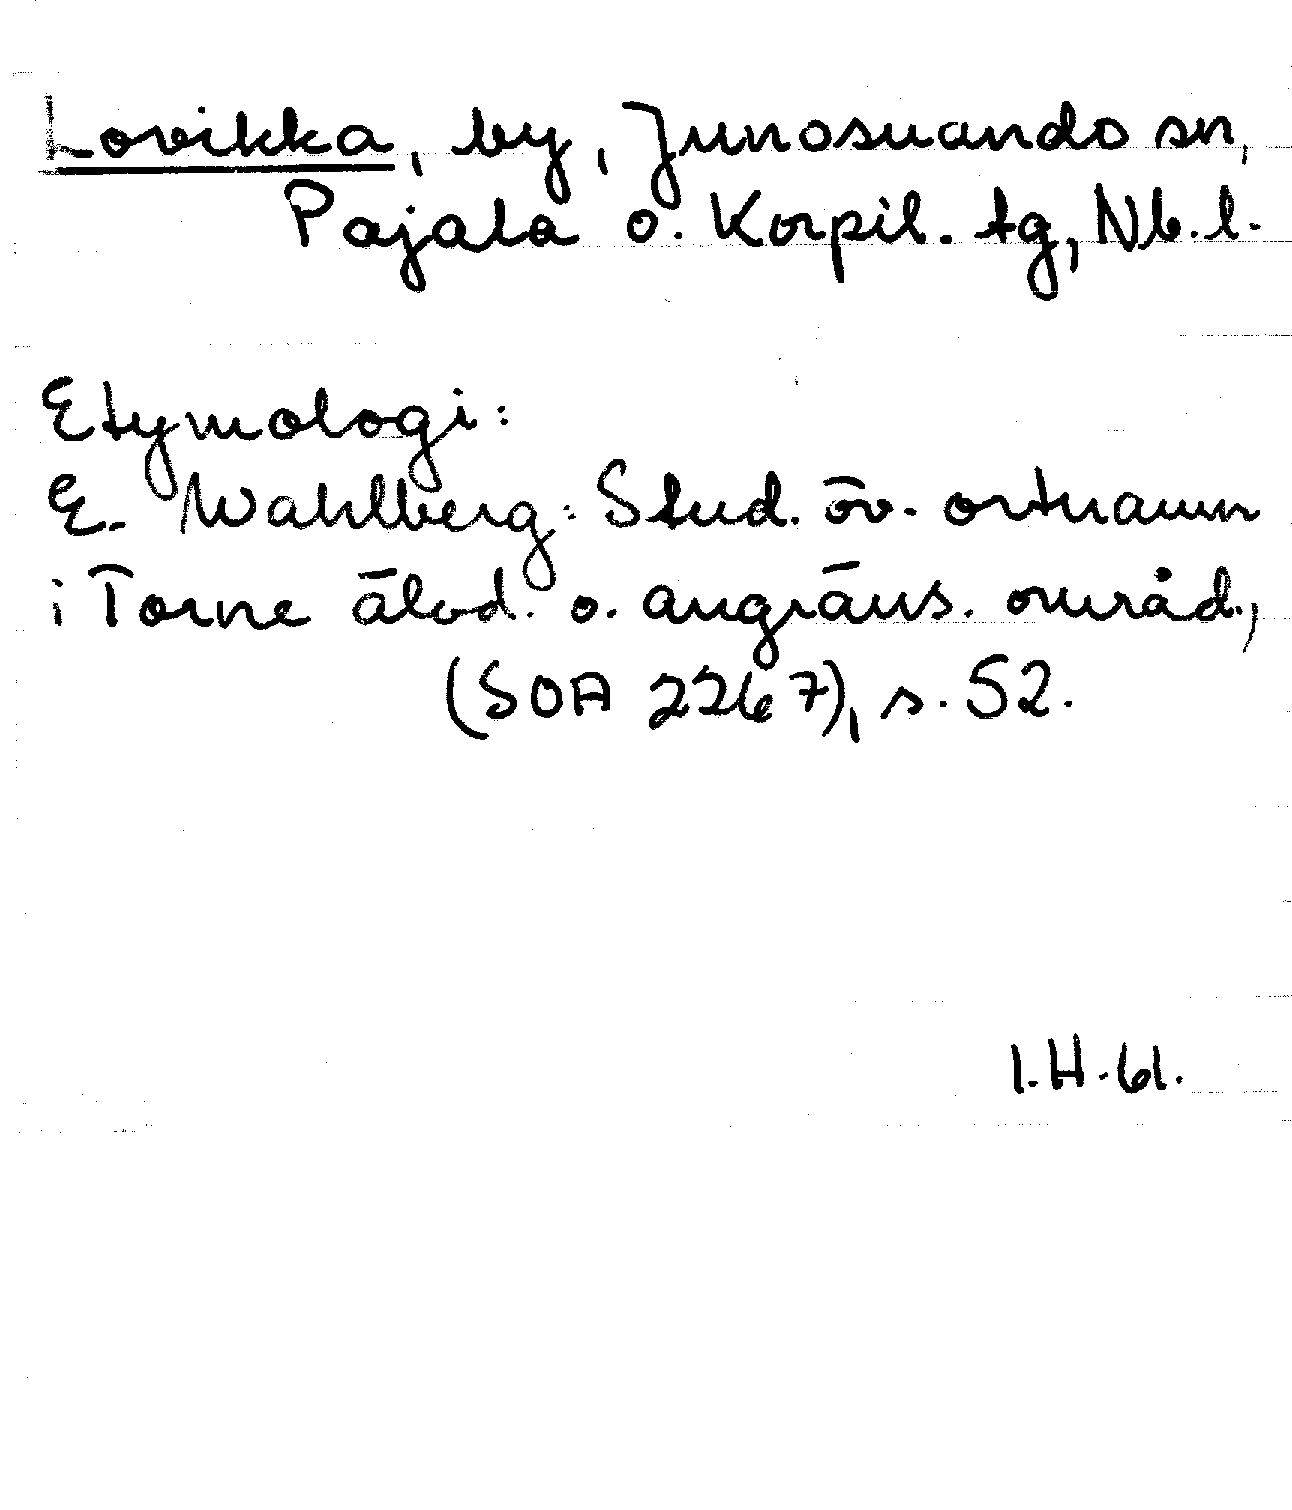 Lovikka, by, Junosuando sn,
Pajala o. Korpil. tg, Nb.l.
Etymologi:
E. Wahlberg: Stud. öv. ortnamn
i Torne älvd. o. angräns. områd.,
(SOA 2267), s. 52.
I.H.61.